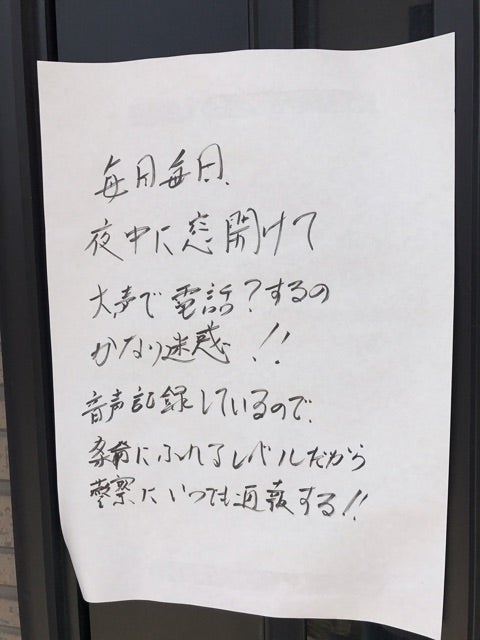 毎日毎日、
夜中に窓開けて
大声で電話?するの
かなり迷惑!!
音声記録しているので、
条例にふれるレベルだから
警察にいつでも通報する!!